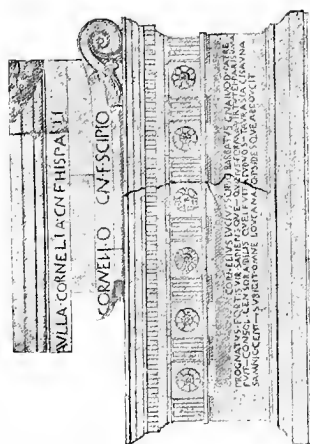 AVLLA·CORNELIA·CN·F·HISPALLI
CORNELIO CN·F·SCIPIO
CORNELIVS·LVCIVS·SCIPIO·BARBATVS·GNAIVOD·PATRE
PROGNATVS·FORTIS·VIR·SAPIENSQVE—QVOIVS·FORMA·VIRTVTEI·PARISVMA
FVIT—CONSOL·CENSOR·AIDILIS·QVEI·FVIT·APVD·VOS—TAVRASIA·CISAVNA
SAMNIO·CEPIT—SVBIGIT·OMNE·LOVCANA·OPSIDESQVE·ABDOVCIT